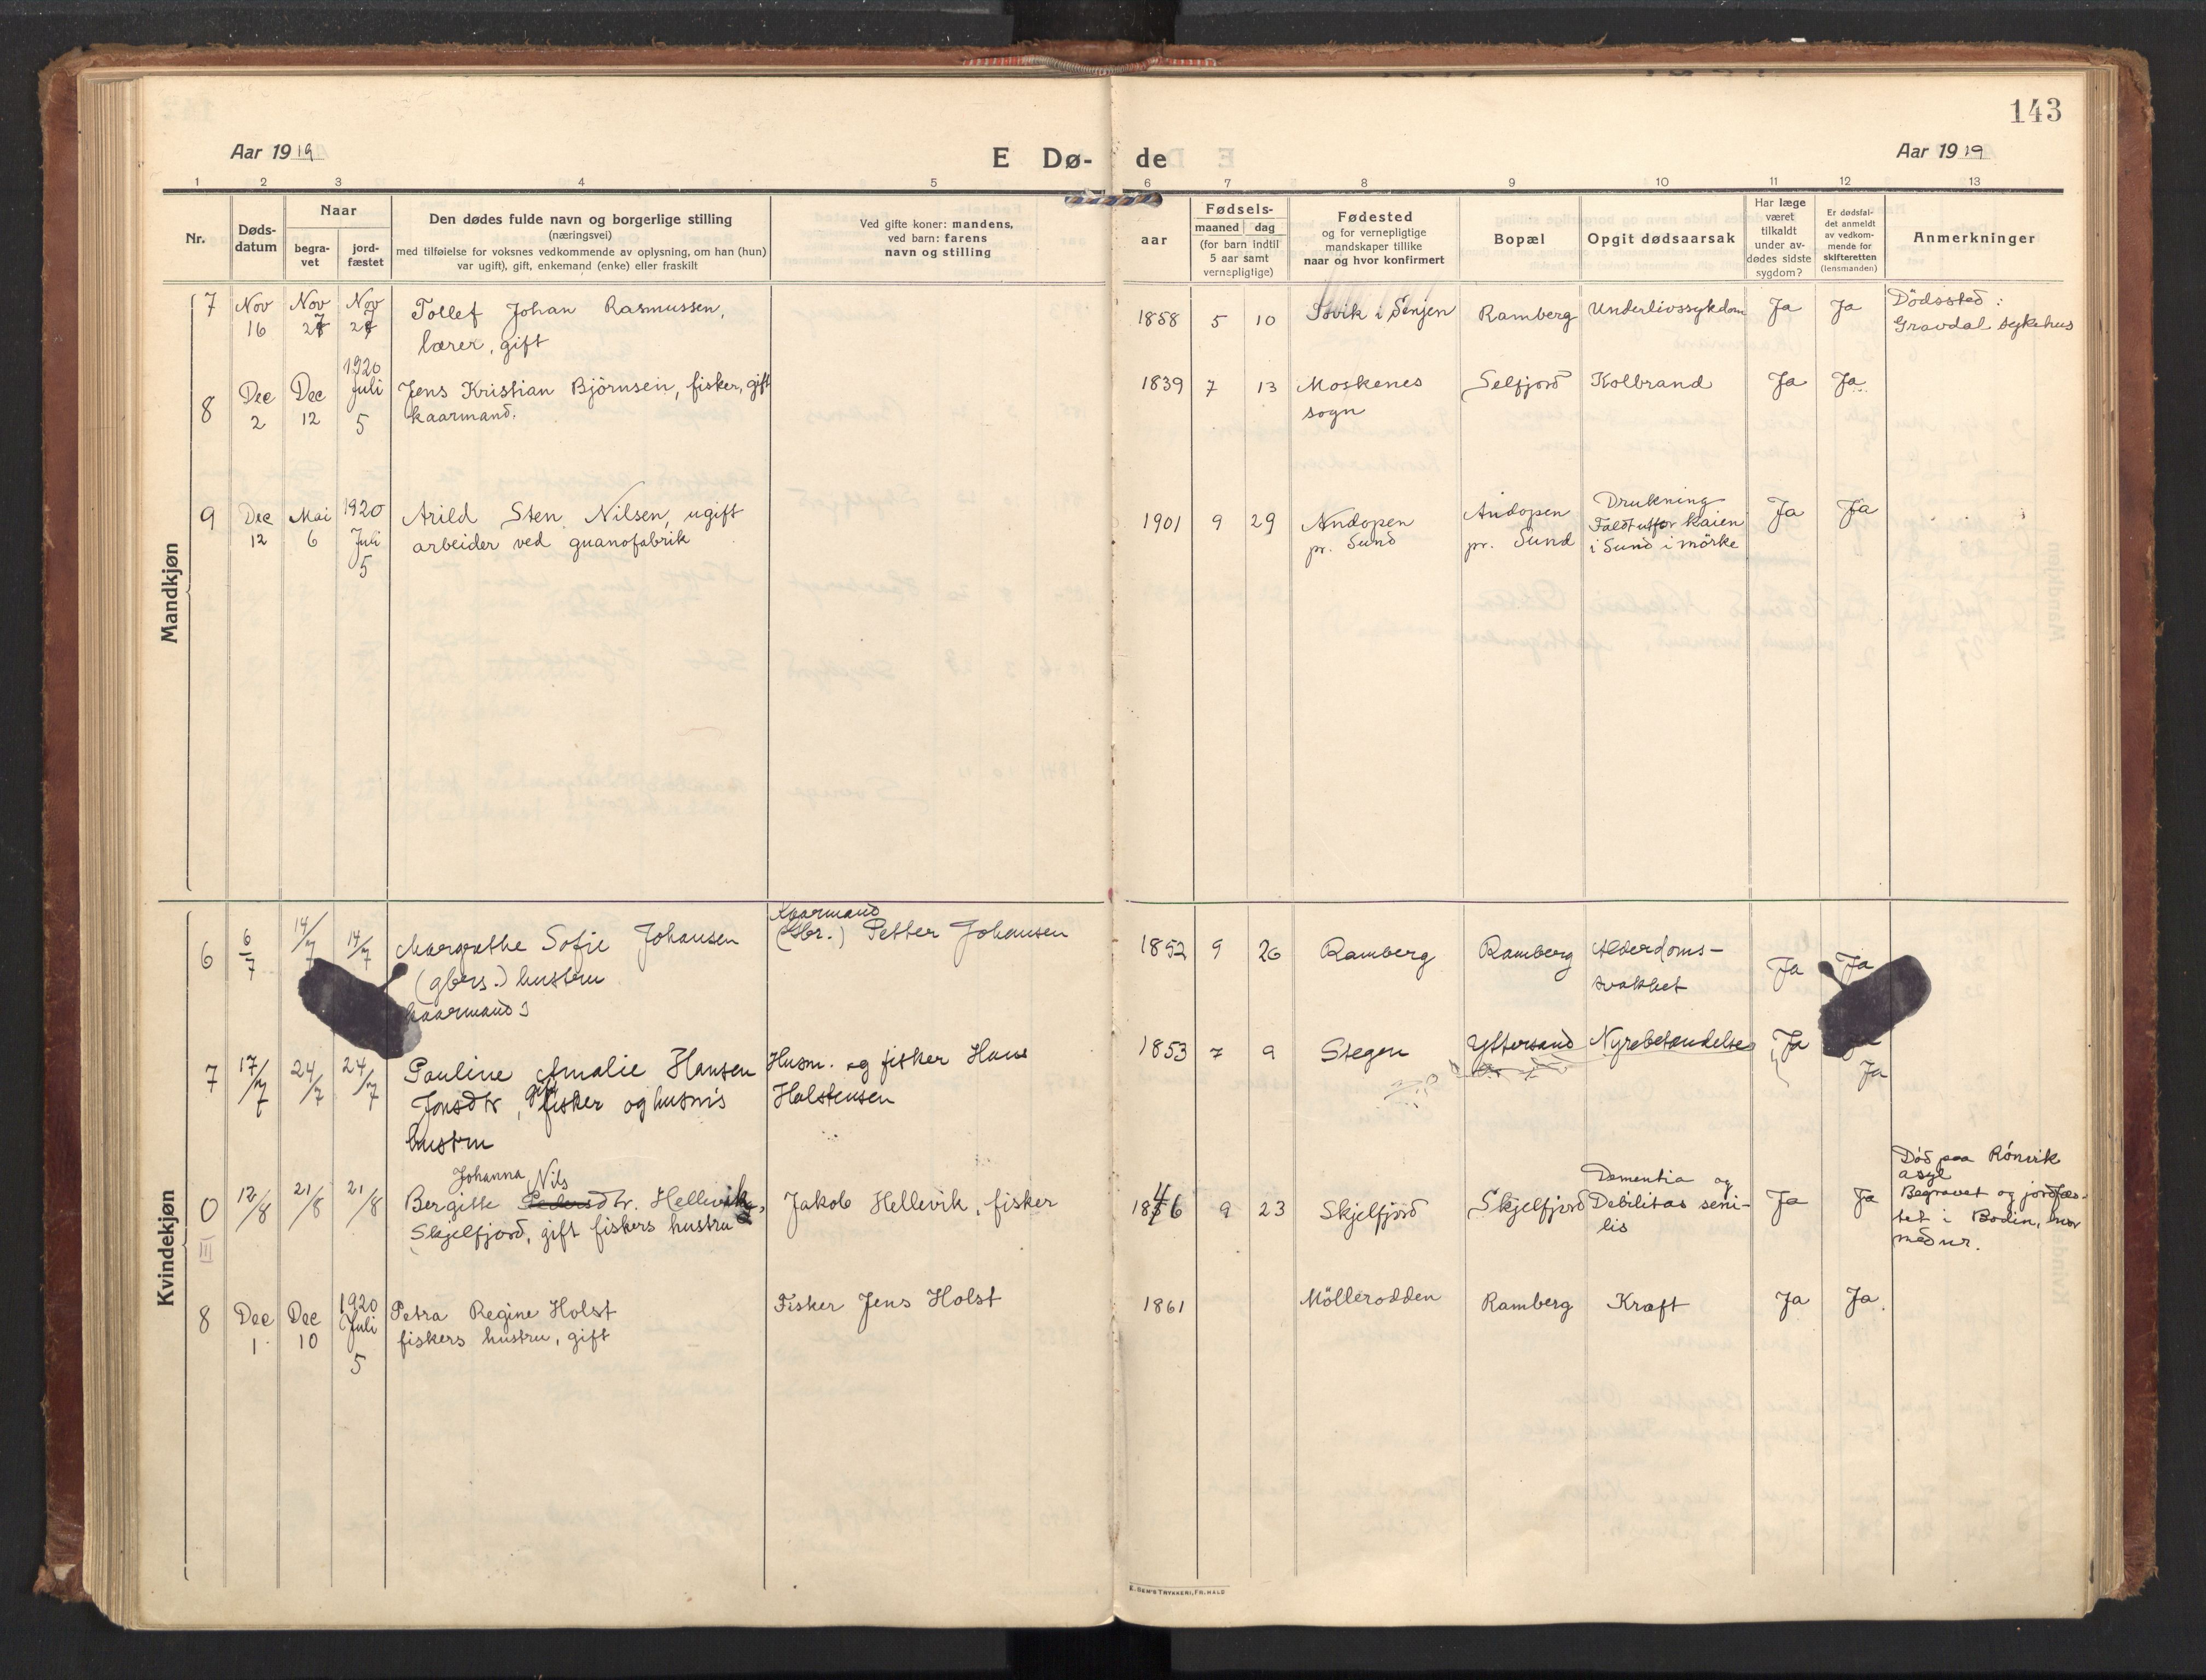 143
Aar 1919
E Dø- de
Aar 1919
1 2 3 4 5 6 7 8 9 10 11 12 13
Nr.
Døds-
datum
Naar
begra-
vet
jord-
fæstet
Den dødes fulde navn og borgerlige stilling
(næringsvei)
med tilføielse for voksnes vedkommende av oplysning, om han (hun)
var ugift), gift, enkemand (enke) eller fraskilt
Ved gifte koner: mandens,
ved barn: farens
navn og stilling
Fødsels-
aar
maaned dag
(for barn indtil
5 aar samt
vernepligtige)
Fødested
og for vernepligtige
mandskaper tillike
naar og hvor konfirmert
Bopæl
Opgit dødsaarsak
Har læge
været
tilkaldt
under av-
dødes sidste
sygdom?
Er dødsfal-
det anmeldt
av vedkom-
mende for
skifteretten
(lensmanden)
Anmerkninger
Mandkjøn
7 Nov 16 Nov 27 Nov 27 Tollef Johan Rasmussen,
lærer, gift
1858 5 10 i Senjen Ramberg Underlivssykdom Ja Ja Dödssted:
Gravdal sykehus
8 Dec 2 Dec 12 1920 Juli 5 Jens Kristian Björnsen, fisker, gift
kaarmand.
1839 7 13 Moskenes
sogn
Selfjord Kolbrand Ja Ja
9 Dec 12 Mai 6 1920 Juli 5 Arild Sten Nilsen, ugift
arbeider ved guanofabrik
1901 9 29 Nndopen
pr. Sund
Andopen
pr. Sund
Drukning
Faldt utfor kaien
i Sund i mörke
Ja Ja
Kvindekjøn
6 6/7 14/7 14/7 Margrethe Sofie Johansen
(gbrs.) hustru
kaarmands
Kaarmand
(Gbr.) Petter Johansen
1852 9 26 Ramberg Ramberg Alderdoms-
svakhet
Ja Ja
7 17/7 24/7 24/7 Pauline Amalie Hansen
Jonsdtr, gift fisker og husms
hustru
Husm. og fisker Hans
Holstensen
1853 7 9 Stegen Yttersand Nyrebetændelse Ja
Ja
0 12/8 21/8 21/8 Johanna Nils
Bergitte Pedersdtr. Hellevik,
Skjelfjord, gift fiskers hustru
Jakob Hellevik, fisker
1846 9 23 Skjelfjord Skjelfjord Dementia og
Debilitas seni-
lis
Ja Ja
Död paa Rönvik
asyl
Begravet og jordfæs-
tet i Bodin,
8 Dec 1 Dec 10 1920 Juli 5 Petra Regine Holst
fiskers hustru, gift
Fisker Jens Holst
1861 Möllerodden Ramberg Kræft Ja Ja
E. SEM'S TRYKKERI, FR. HALD